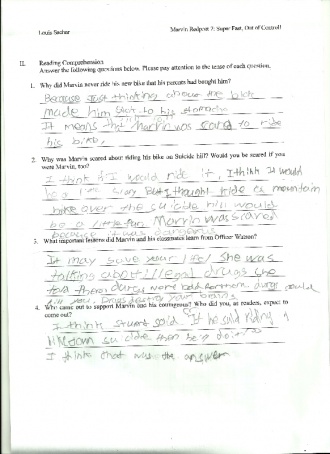 Louis Sachar Marvin Redpost 7: Super Fast, Out of Control!
II. Reading Comprehension
Answer the following questions below. Please pay attention to the tense of each question.
1. Why did Marvin never ride his new bike that his parents had bought him?
Because Just thinking about the bike
made him sick to his stomach
It means that Marvin was scared to ride
his bike.
2. Why was Marvin scared about riding his bike on Suicide hill? Would you be scared if you
were Marvin, too?
I think if I would ride it, I think I would
be a But I thought ride a mountain
bike over the suicide hill would
be a little fun. Marvin was scared
because it was dangerous
3. What important lessons did Marvin and his classmates learn from Officer Watson?
It may save your life! She was
talking about illegal drugs she
told them drugs were bad for them, drugs could
kill you, Drugs your
4. Who came out to support Marvin and his courageous? Who did you, as readers, expect to
come out?
I think Stuart said If he said riding a
then
I think that was the answer